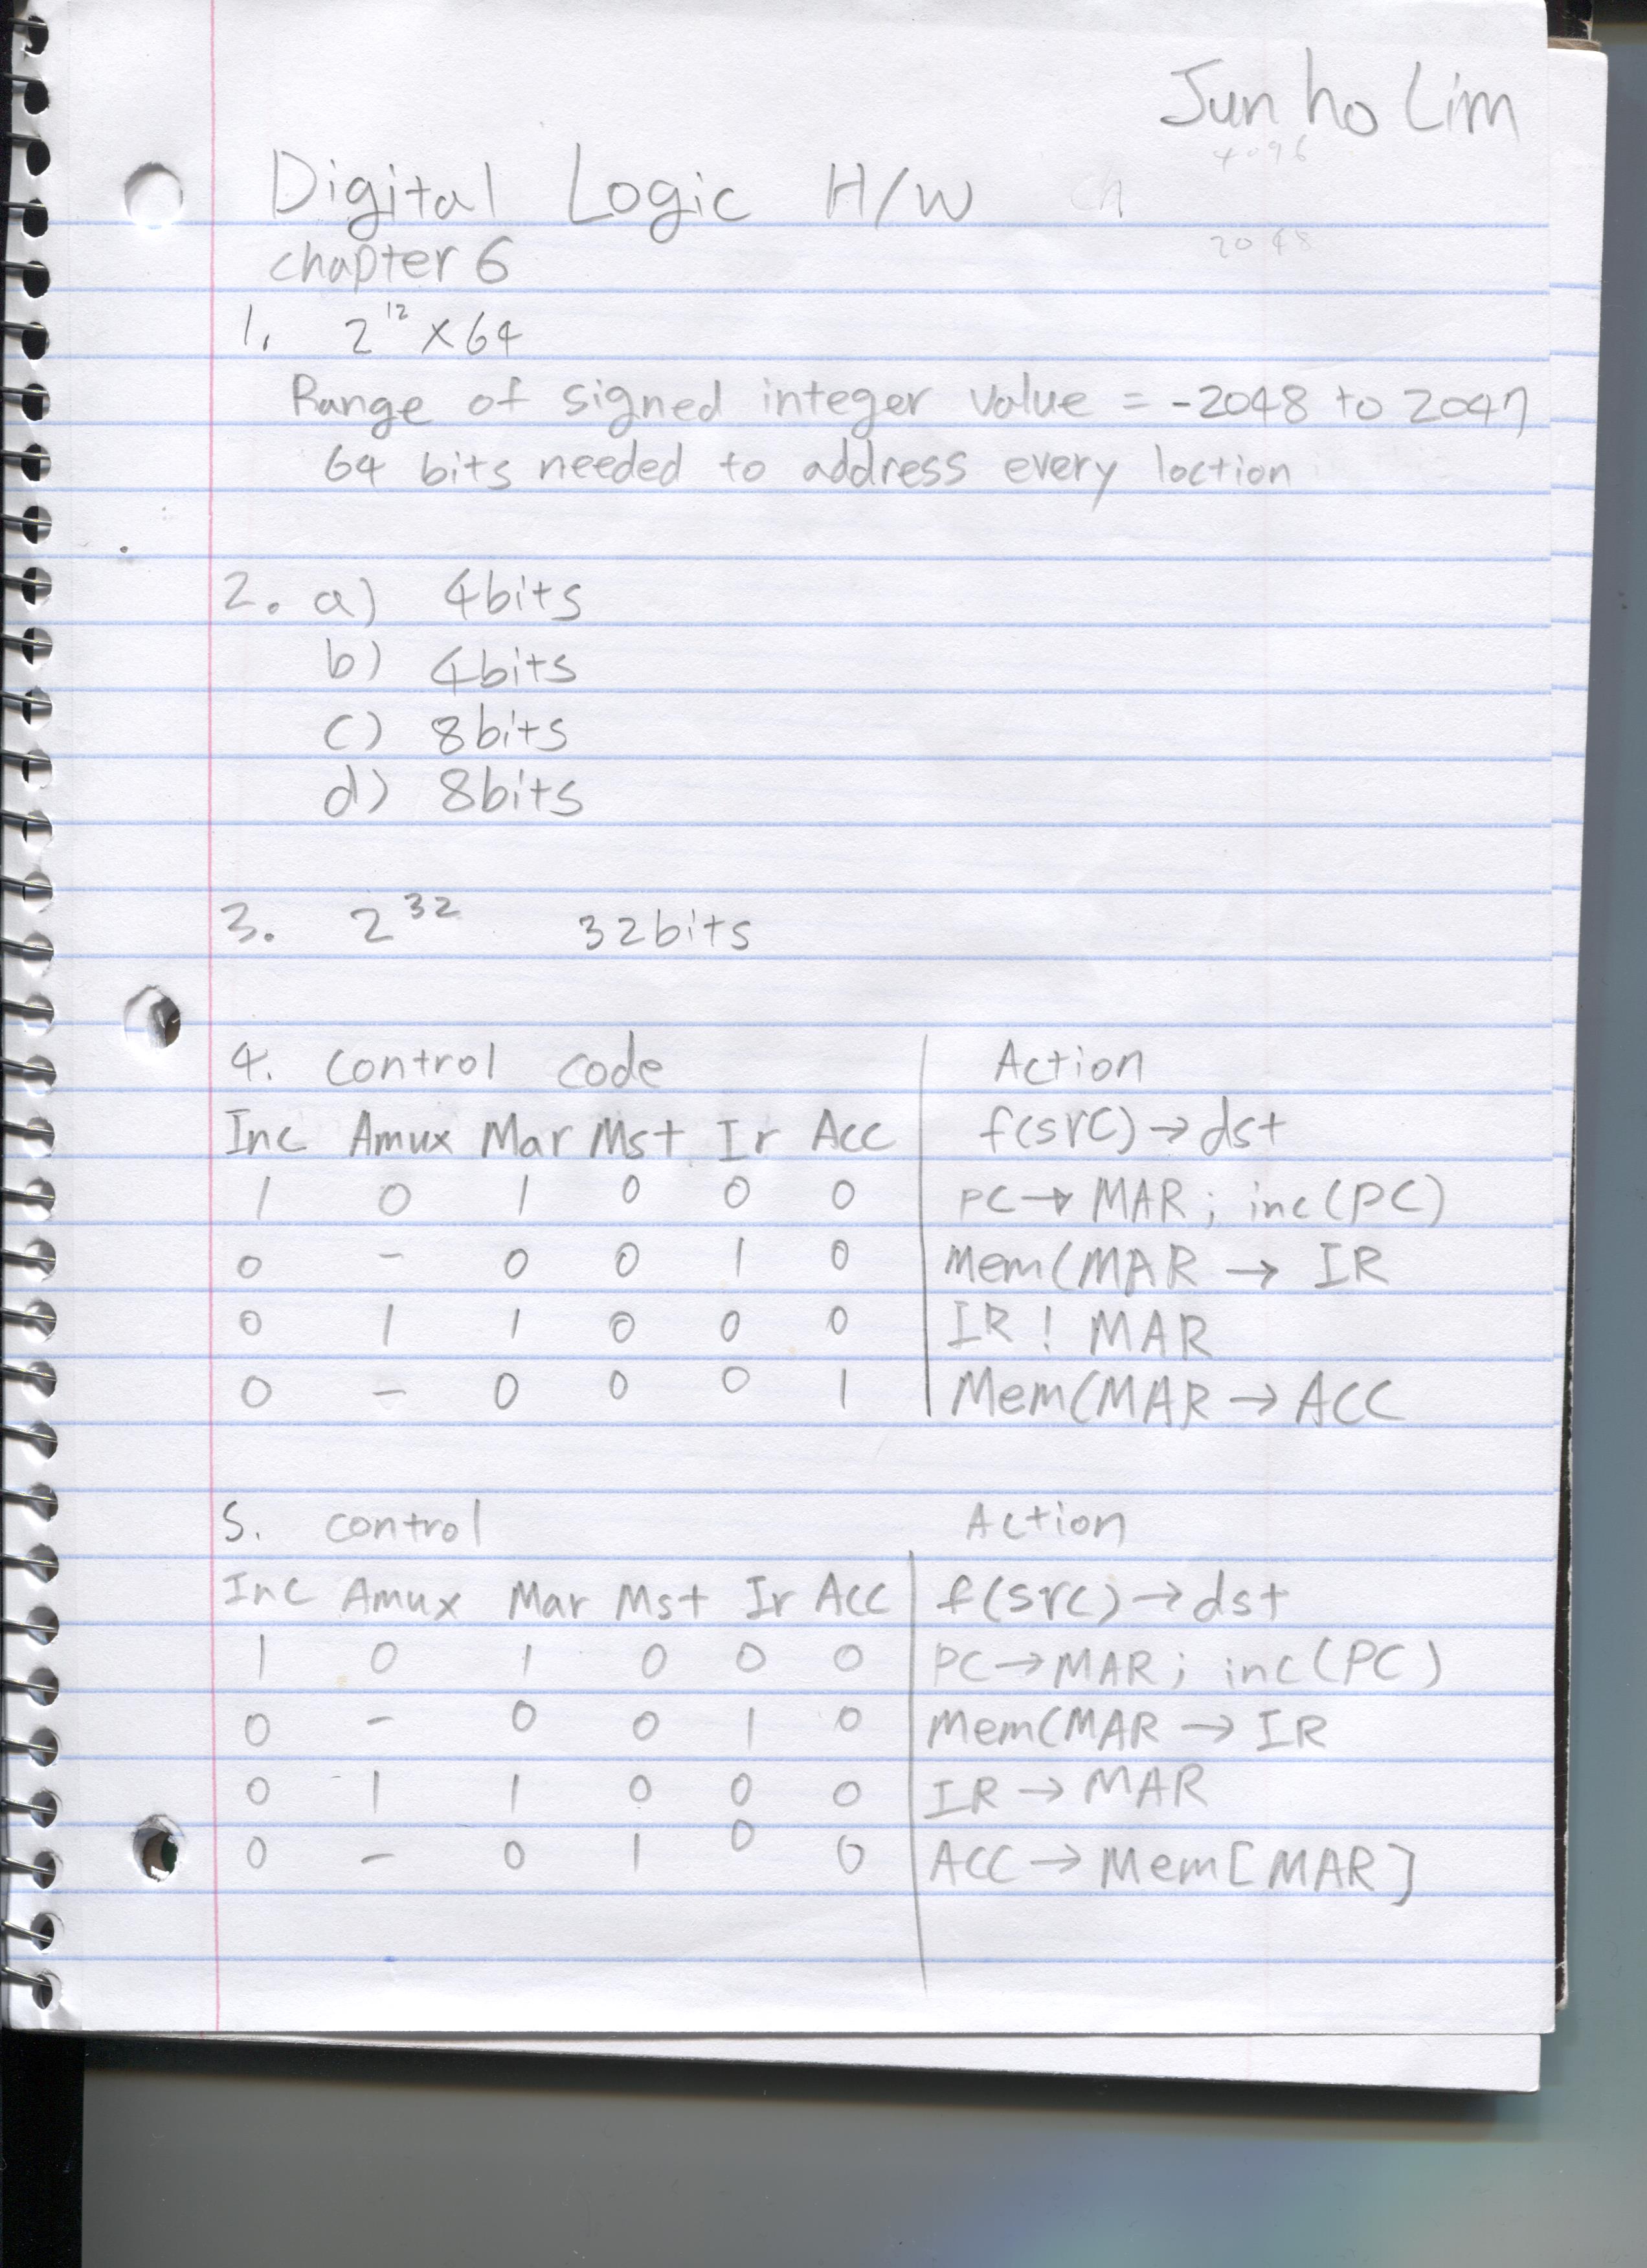 Jun ho Lim
4096
Digital Logic H/W ch
2048
chapter 6
1. 2^12 × 64
Range of signed integer value = -2048 to 2047
64 bits needed to address every loction
2. a) 4bits
b) 4bits
c) 8bits
d) 8bits
3. 2^32 32bits
4. control code Action
Inc Amux Mar Mst Ir Acc f(src) → dst
1 0 1 0 0 0 PC → MAR; inc(PC)
0 - 0 0 1 0 Mem(MAR → IR
0 1 1 0 0 0 IR ! MAR
0 - 0 0 0 1 Mem(MAR → ACC
5. control Action
Inc Amux Mar Mst Ir Acc f(src) → dst
1 0 1 0 0 0 PC → MAR; inc(PC)
0 - 0 0 1 0 Mem(MAR → IR
0 1 1 0 0 0 IR → MAR
0 - 0 1 0 0 ACC → Mem[MAR]